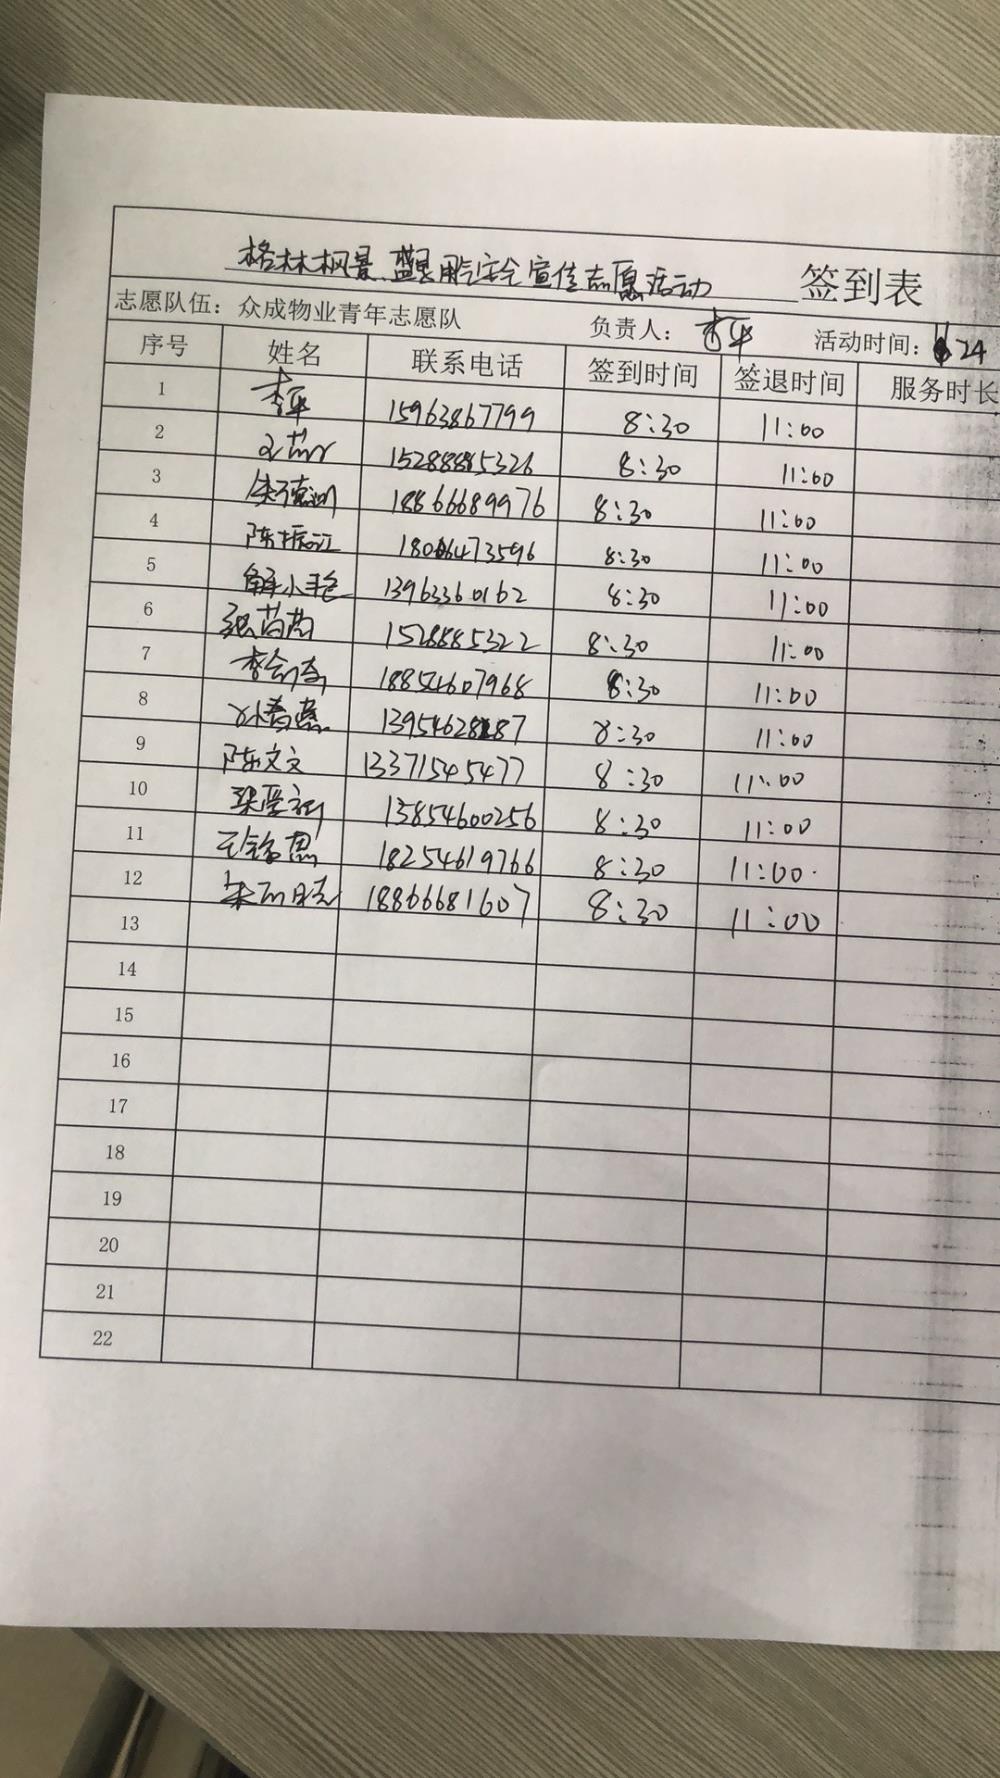 格林枫景 用气安全宣传志愿活动 签到表
志愿队伍：众成物业青年志愿队 负责人：李华 活动时间： 24
序号 姓名 联系电话 签到时间 签退时间 服务时长
1 李华 15963867799 8:30 11:00
2 15288885326 8:30 11:00
3 18866689976 8:30 11:00
4 陈振江 18006473596 8:30 11:00
5 解小艳 13963360162 8:30 11:00
6 张苗苗 1528885322 8:30 11:00
7 18854607968 8:30 11:00
8 8:30 11:00
9 陈文文 13371545477 8:30 11:00
10 13854600256 8:30 11:00
11 18254619766 8:30 11:00
12 18866681607 8:30 11:00
13
14
15
16
17
18
19
20
21
22